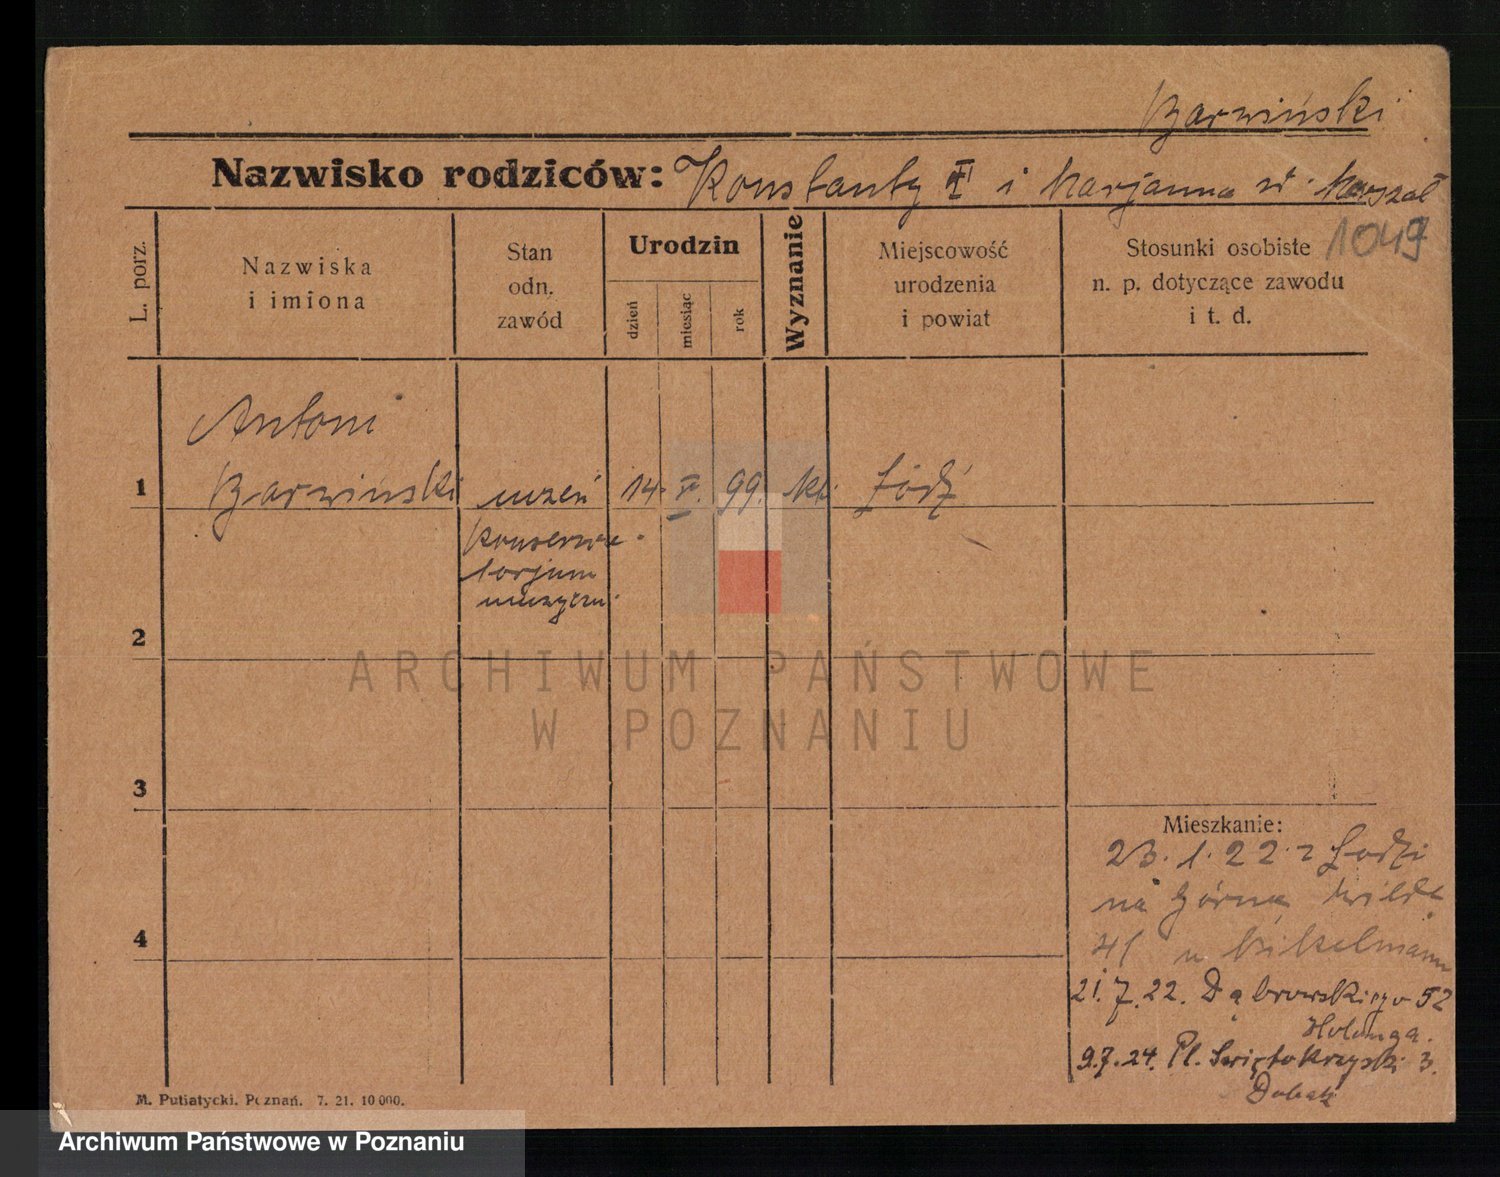 Barwiński
Nazwisko rodziców: Konstanty i Marjanna
1049
L. porz.
Nazwiska
i imiona
Stan
odn.
zawód
Urodzin
dzień
miesiąc
rok
Wyznanie
Miejscowość
urodzenia
i powiat
Stosunki osobiste
n. p. dotyczące zawodu
i t. d.
Antoni
1 Barwiński uczeń 14. V. 99. kt. Łódź
Konserwa-
torjum
muzyczn.
2
3
4
Mieszkanie:
23.1.22. z Łodzi
na Górną Wildę
41 u
21.7.22. Dąbrowskiego 52
9.7.24. Pl. Świętokrzyski 3.
M. Putiatycki. Poznań. 7. 21. 10 000.
ARCHIWUM PAŃSTWOWE
W POZNANIU
Archiwum Państwowe w Poznaniu